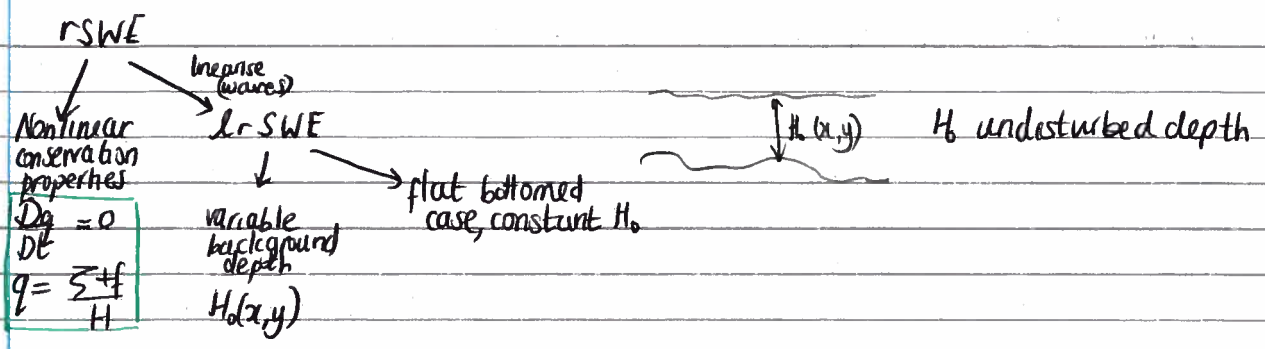 rSWE
linearise
(waves)
Nonlinear
conservation
properties
Dq/Dt = 0
q = ζ+f/H
lrSWE
variable
background
depth
H₀(x,y)
flat bottomed
case, constant H₀
H₀(x,y)
H₀ undisturbed depth